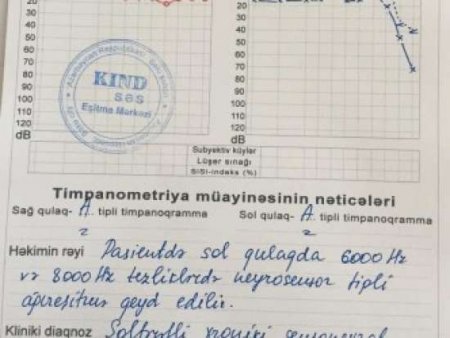 20
30
40
50
60
70
80
90
100
110
120
dB
20
30
40
50
60
70
80
90
100
110
120
dB
Azərbaycan Respublikası
KIND
səs
Eşitmə Mərkəzi
Subyektiv küylər
Lüşer sınağı
SISI-indeks (%)
Timpanometriya müayinəsinin nəticələri
Sağ qulaq- A tipli timpanoqramma Sol qulaq- A tipli timpanoqramma
Həkimin rəyi Pasientdə sol qulaqda 6000 Hz
və 8000 Hz tezliklərdə neyrosensor tipli
qeyd edilir.
Kliniki diaqnoz xroniki sensonevral